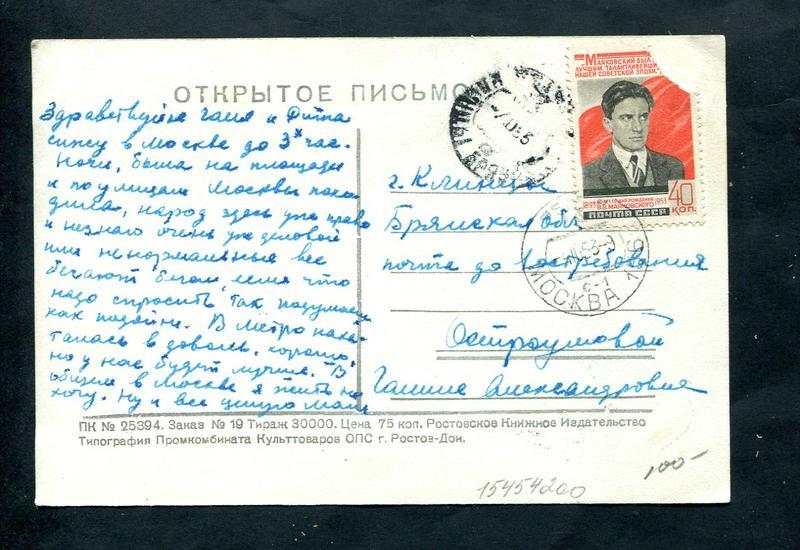 ОТКРЫТОЕ ПИСЬМО
Здравствуйте Галя и
сижу в Москве до 3х час.
Ночи, была на площади
и по улицам Москвы похо-
дила, народ здесь уж право
и незнаю очень уж деловой
или ненормальные все
бегают бегом, если что
надо спросить, так подумаешь
как подойти. В Метро ната-
талась в доволь, хорошо,
но у нас будет лучше. В
общем в Москве я жить не
хочу. Ну и все целую Маля
„МАЯКОВСКИЙ БЫЛ
ЛУЧШИМ, ТАЛАНТЛИВЕЙШИМ
НАШЕЙ СОВЕТСКОЙ ЭПОХИ"
1893 60 ЛЕТ СО ДНЯ РОЖДЕНИЯ В.В. МАЯКОВСКОГО 1953
ПОЧТА СССР
40 КОП.
МОСКВА
с-1
г. Клинцы
Брянская обл
почта до востребования
Остроумовой
Галине Александровне
ПК № 25394. Заказ № 19 Тираж 30000. Цена 75 коп. Ростовское Книжное Издательство
Типография Промкомбината Культтоваров ОПС г. Ростов-Дон.
15454200
100-